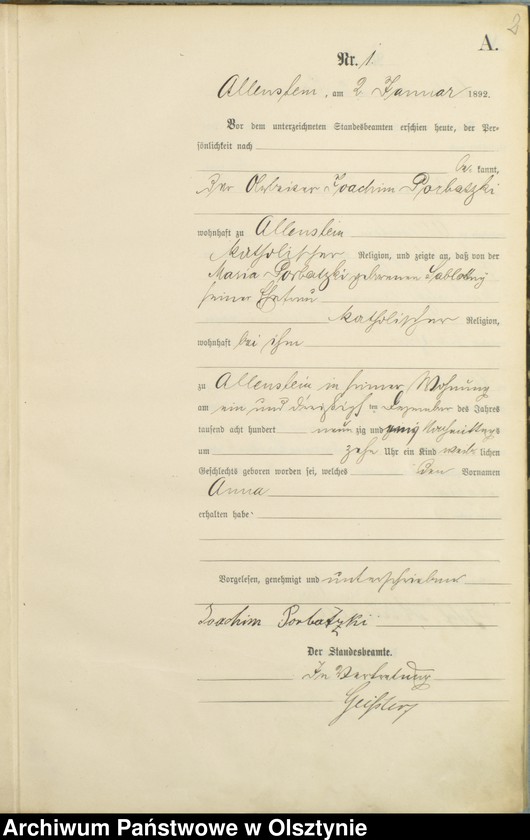 2
A.
Nr. 1.
Allenstein, am 2 Januar 1892.
Vor dem unterzeichneten Standesbeamten erschien heute, der Per=
sönlichkeit nach
be kannt,
Der Joachim Porbatzki
wohnhaft zu Allenstein
katholischer Religion, und zeigte an, daß von der
Maria Porbatzki geborenen
seiner Ehefrau
katholischer Religion,
wohnhaft bei ihm
zu Allenstein in seiner Wohnung
am ein und dreißigst en Dezember des Jahres
tausend acht hundert neun zig und Nachmittags
um zehn Uhr ein Kind weib lichen
Geschlechts geboren worden sei, welches den Vornamen
Anna
erhalten habe
Vorgelesen, genehmigt und unterschrieben
Joachim Porbatzki
Der Standesbeamte.
In Vertretung
Archiwum Państwowe w Olsztynie